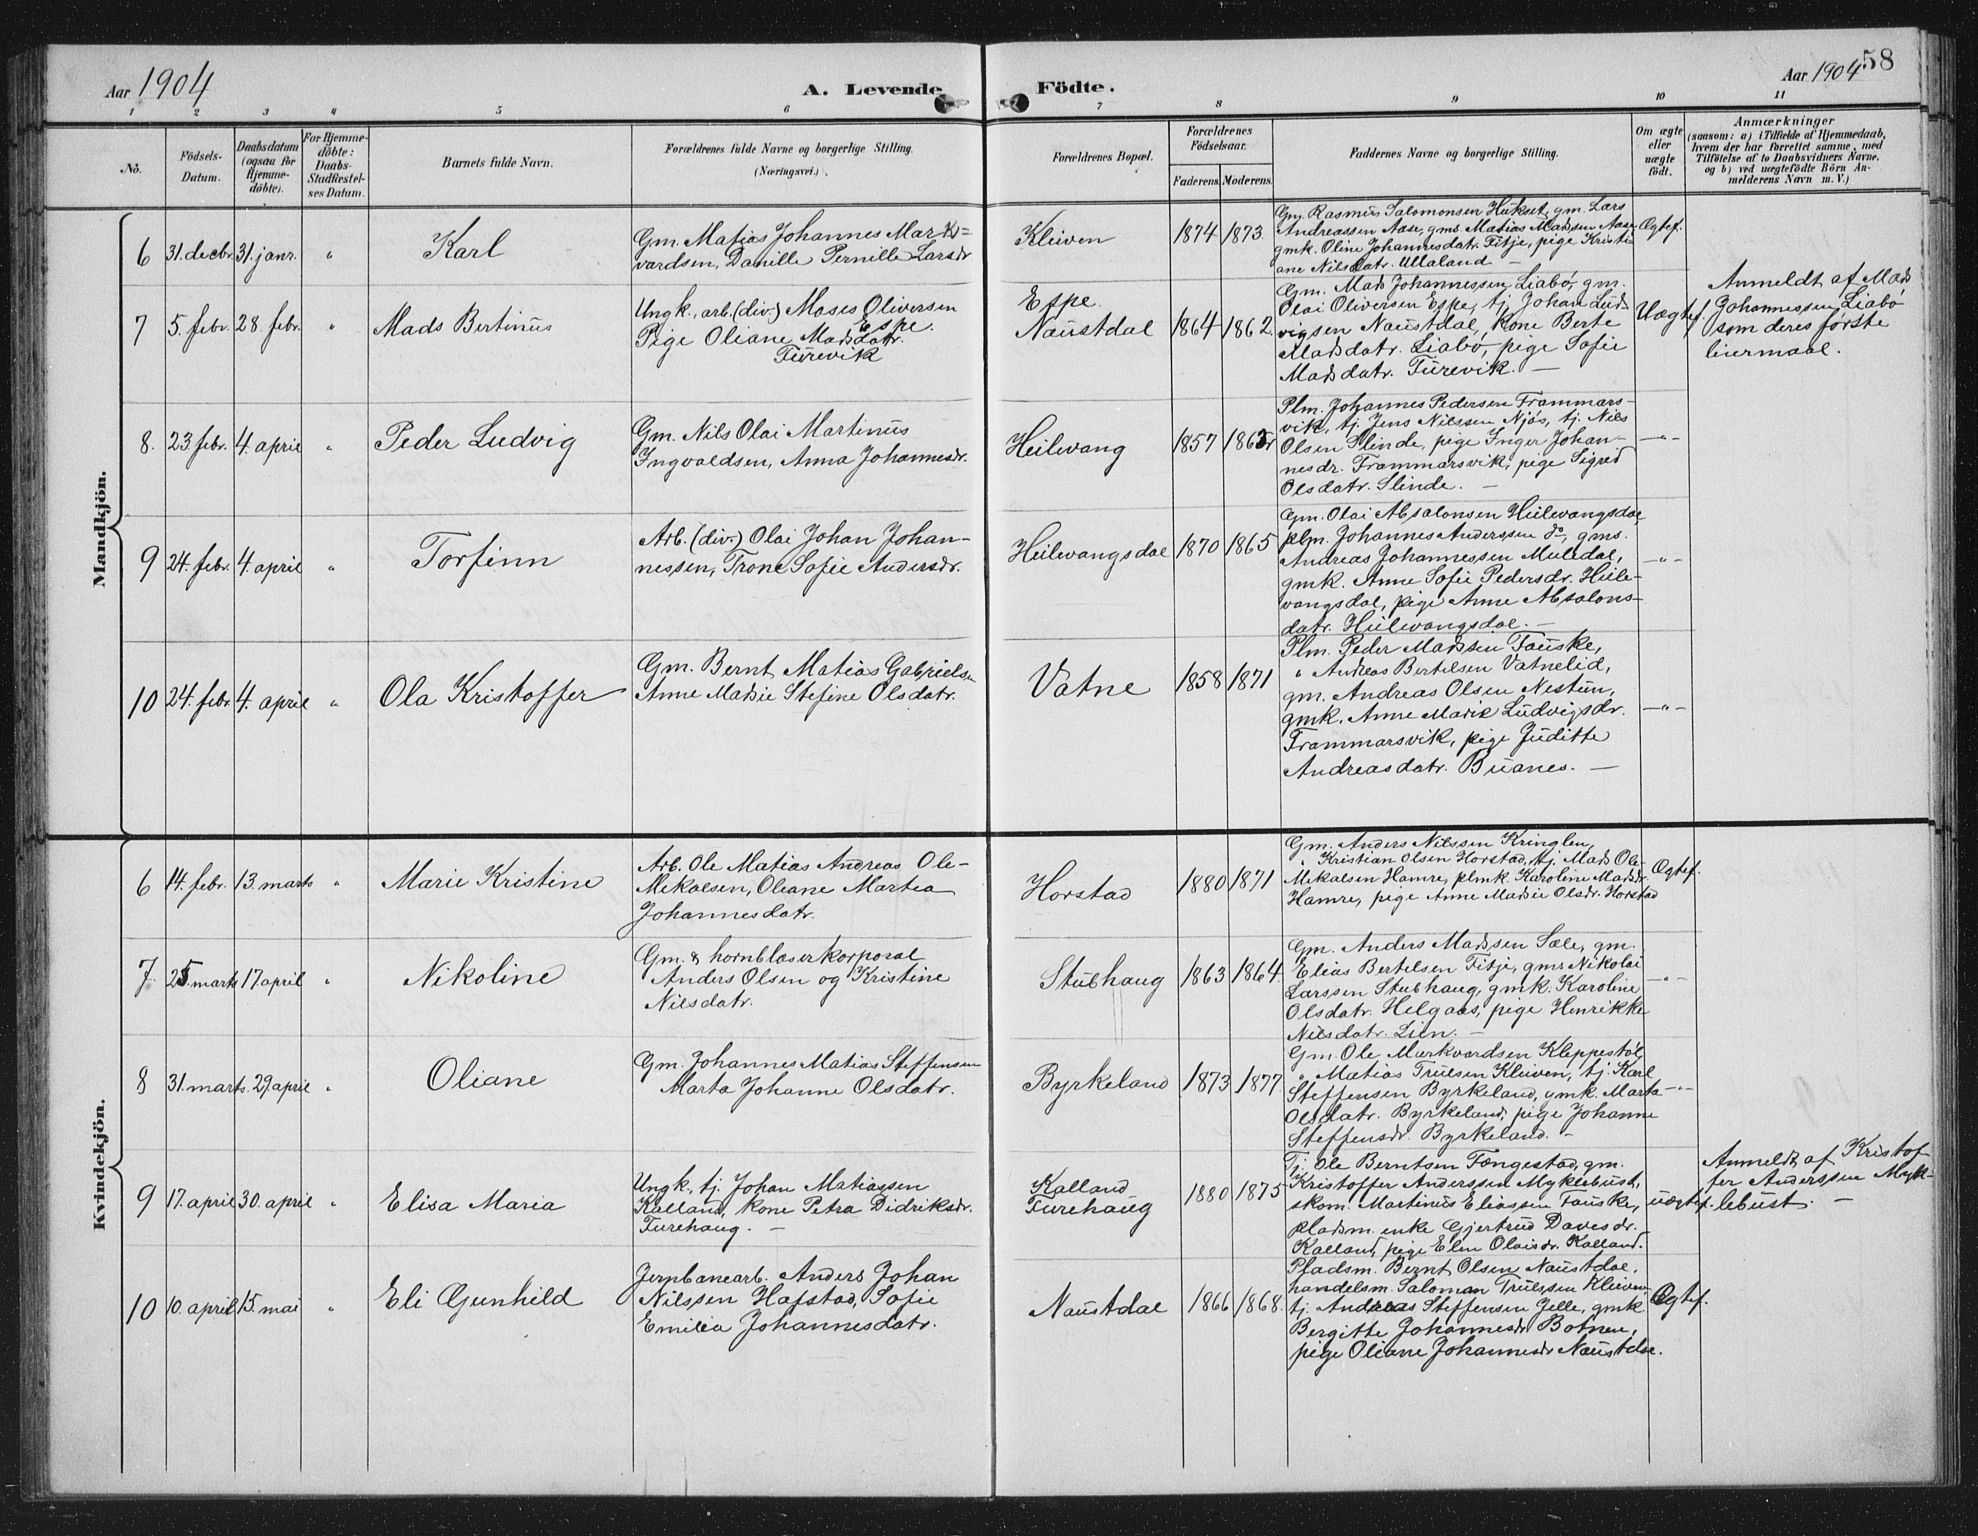 Aar 1904
A. Levende
Födte.
Aar 1904
58
1
2
3
4
5
6
7
8
9
10
11
No.
Födsels-
Datum.
Daabsdatum
(ogsaa for
Hjemme-
döbte).
For Hjemme-
döbte:
Daabs-
Stadfæstel-
ses Datum.
Barnets fulde Navn.
Forældrenes fulde Navne og borgerlige Stilling.
(Næringsvei.)
Forældrenes Bopæl.
Forældrenes
Födselsaar.
Faderens. Moderens.
Faddernes Navne og borgerlige Stilling.
Om ægte
eller
uægte
födt.
Anmærkninger
(saasom: a) i Tilfælde af Hjemmedaab,
hvem der har forrettet samme, med
Tilföielse af to Daabsvidners Navne,
og b) ved uægtefödte Börn An-
melderens Navn m. V.)
Mandkjön.
6
31. decbr.
31. janr.
"
Karl
Gm. Matias Johannes Mark-
vardsen, Danille Pernille Larsdr
Kleiven
1874
1873
Gm. Rasmus Salomonsen Hukset, gm. Lars
Andreassen Aase, gms. Matias Madsen Aase,
gmk. Oline Johannesdatr. Fitje, pige Kristi
ane Nilsdatr. Ullaland —
Ægtef.
7
5. febr.
28. febr.
"
Mads Bertinus
Ungk., arb. (div.) Moses Oliversen
Espe.
Pige Oliane Madsdatr.
Furevik
Espe.
Naustdal
1864
1862
Gm. Mads Johannessen Liabø, gm.
Olai Oliversen Espe, tj. Johan Lud
vigsen Naustdal, kone Berte
Madsdatr. Liabø, pige Sofie
Madsdatr. Furevik. —
Uægtef.
Anmeldt af Mads
Johannessen Liabø
som deres første
leiermaal.
8.
23. febr.
4. april
"
Peder Ludvig
Gm. Nils Olai Martinus
Ingvaldsen, Anna Johannesdr.
Heilevang
1857
Plm. Johannes Pedersen Frammars-
vik, tj. Jens Nilssen Njøs, tj. Nils
Olsen Slinde, pige Inger Johan-
nesdr. Frammarsvik, pige Sigrid
Olsdatr. Slinde. —
—"—
9
24. febr.
4. april
"
Torfinn
Arb. (div.) Olai Johan Johan-
nessen, Trone Sofie Andersdr.
Heilevangsdal
1870
1865
Gm. Olai Absalonsen Heilevangsdal
plm. Johannes Anderssen do, gms.
Andreas Johannessen Muldal,
gmk. Anne Sofie Pedersdr. Heile-
vangsdal, pige Anne Absalons-
datr. Heilevangsdal. —
—"—
10
24. febr.
4. april
"
Ola Kristoffer
Gm. Bernt Matias Gabrielsen
Anne Marie Stefine Olsdatr.
Vatne
1858
1871
Plm. Peder Madsen Fauske,
" Andreas Bertelsen Vatnelid,
gm. Andreas Olsen Nestun,
gmk. Anne Marie Ludvigsdr.
Frammarsvik, pige Juditte
Andreasdatr. Buanes. —
—"—
Kvindekjön.
6
14. febr.
13. marts
"
Marie Kristine
Arb. Ole Matias Andreas Ole-
Mikalsen, Oliane Martea
Johannesdatr.
Horstad
1880
1871
Gm. Anders Nilssen Kringlen,
" Kristian Olsen Horstad, tj. Mads Ole-
Mikalsen Hamre, plmk. Karoline Madsdr.
Hamre, pige Anne Marie Olsdr. Horstad
Ægtef.
7
25. marts
17. april
"
Nikoline
Gm. & hornblæserkorporal
Anders Olsen og Kristine
Nilsdatr.
Stubhaug
1863
1864.
Gm. Anders Madssen Sæle, gm.
Elias Bertelsen Fitje, gms Nikolai
Larssen Stubhaug, gmk. Karoline
Olsdatr. Helgaas, pige Henrikke
Nilsdatr. Lien. —
—"—
8
31. marts.
29. april
"
Oliane
Gm. Johannes Matias Steffensen
Marta Johanne Olsdatr.
Byrkeland
1873
1877
Gm. Ole Markvardsen Kleppestøl,
" Matias Trulsen Kleiven, tj. Karl
Steffensen Byrkeland, gmk. Marta
Olsdatr. Byrkeland, pige Johanne
Steffensdr. Byrkeland. —
—"—
9
17. april
30. april
"
Elisa Maria
Ungk., tj. Johan Matiassen
Kalland, kone Petra Didriksdr.
Furehaug. —
Kalland
Furehaug
1880
1875
Tj. Ole Berntsen Fængestad, gm.
Kristoffer Anderssen Myklebust,
skom. Martinus Eliassen Fauske,
pladsm. enke Gjertrud Davidsdr.
Kalland, pige Elen Olaisdr. Kalland.
uægtef.
Anmeldt af Kristof
fer Anderssen Myk-
lebust. —
10
10. april
15. mai
"
Eli Gunhild
Jernbanearb. Anders Johan
Nilssen Hafstad, Sofie
Emilia Johannesdatr.
Naustdal
1866
1868.
Pladsm. Bernt Olsen Naustdal,
handelsm. Salomon Trulssen Kleiven
tj. Andreas Steffensen Jelle, gmk.
Bergitte Johannesdr Botnen,
pige Oliane Johannesdr Naustdal.
Ægtef.